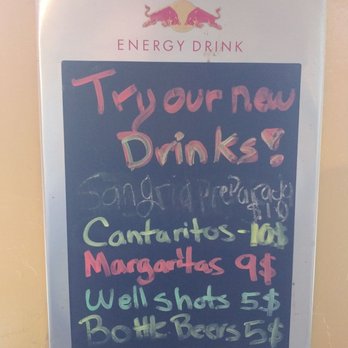 ENERGY DRINK
Try our new
Drinks!
Sangria preparada
$10
Cantaritos-10$
Margaritas 9$
Well shots 5$
Bottle Beers 5$